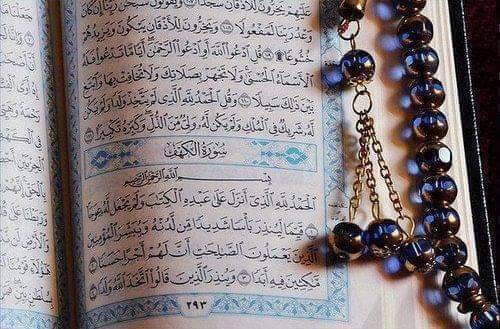 عَلَيْهِمْ يَخِرُّونَ لِلْأَذْقَانِ سُجَّدًا ۝١٠٧ وَيَقُولُونَ سُبْحَٰنَ رَبِّنَآ إِن كَانَ
وَعْدُ رَبِّنَا لَمَفْعُولًا ۝١٠٨ وَيَخِرُّونَ لِلْأَذْقَانِ يَبْكُونَ وَيَزِيدُهُمْ
خُشُوعًا ۩ ۝١٠٩ قُلِ ٱدْعُوا۟ ٱللَّهَ أَوِ ٱدْعُوا۟ ٱلرَّحْمَٰنَ أَيًّا مَّا تَدْعُوا۟ فَلَهُ
ٱلْأَسْمَآءُ ٱلْحُسْنَىٰ وَلَا تَجْهَرْ بِصَلَاتِكَ وَلَا تُخَافِتْ بِهَا وَٱبْتَغِ
بَيْنَ ذَٰلِكَ سَبِيلًا ۝١١٠ وَقُلِ ٱلْحَمْدُ لِلَّهِ ٱلَّذِى لَمْ يَتَّخِذْ وَلَدًا وَلَمْ يَكُن
لَّهُۥ شَرِيكٌ فِى ٱلْمُلْكِ وَلَمْ يَكُن لَّهُۥ وَلِىٌّ مِّنَ ٱلذُّلِّ وَكَبِّرْهُ تَكْبِيرًا ۝١١١
سُورَةُ الكَهْفِ
بِسْمِ ٱللَّهِ ٱلرَّحْمَٰنِ ٱلرَّحِيمِ
ٱلْحَمْدُ لِلَّهِ ٱلَّذِىٓ أَنزَلَ عَلَىٰ عَبْدِهِ ٱلْكِتَٰبَ وَلَمْ يَجْعَل لَّهُۥ عِوَجَا ۝١
قَيِّمًا لِّيُنذِرَ بَأْسًا شَدِيدًا مِّن لَّدُنْهُ وَيُبَشِّرَ ٱلْمُؤْمِنِينَ
ٱلَّذِينَ يَعْمَلُونَ ٱلصَّٰلِحَٰتِ أَنَّ لَهُمْ أَجْرًا حَسَنًا ۝٢
مَّٰكِثِينَ فِيهِ أَبَدًا ۝٣ وَيُنذِرَ ٱلَّذِينَ قَالُوا۟ ٱتَّخَذَ ٱللَّهُ وَلَدًا ۝٤
٢٩٣